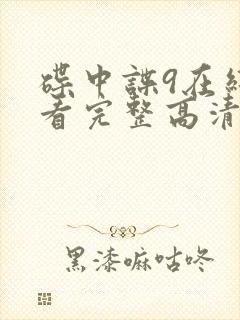 碟中諜9在線
看完整高清
黑漆嘛咕咚